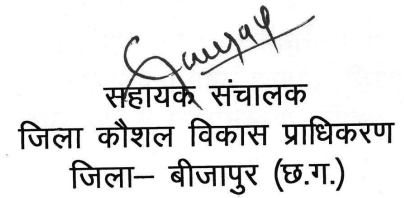 सहायक संचालक
जिला कौशल विकास प्राधिकरण
जिला– बीजापुर (छ.ग.)